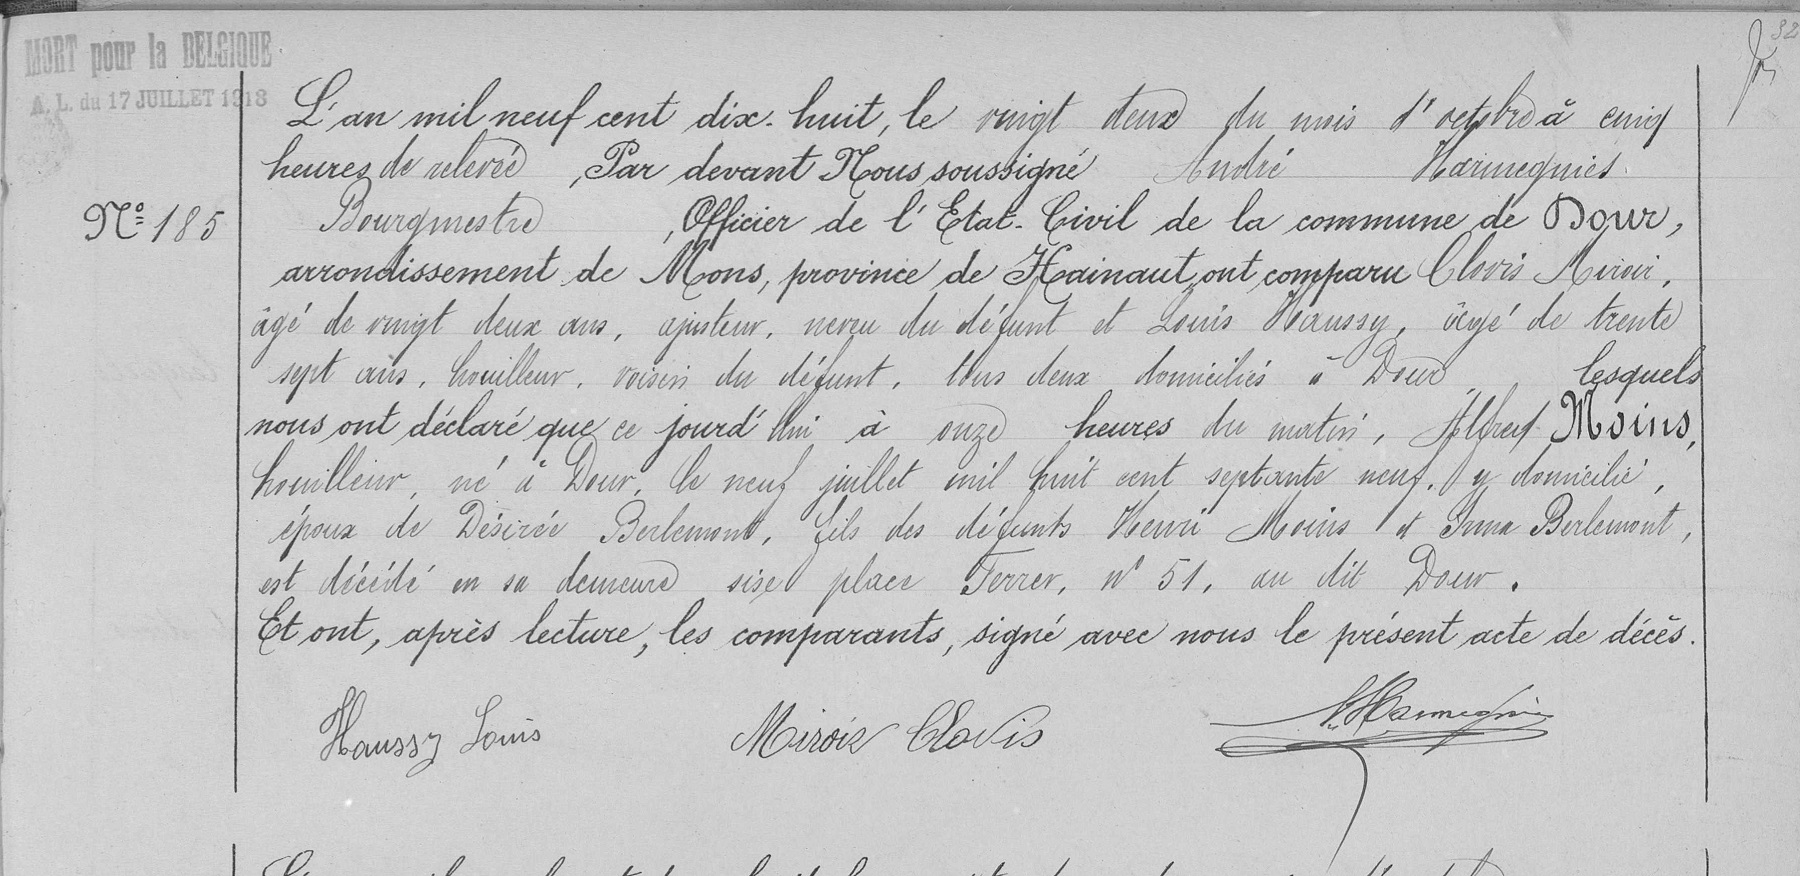 MORT pour la BELGIQUE
A. L. du 17 JUILLET 1918
32
L'an mil neuf cent dix-huit, le vingt deux du mois d'octobre à cinq
heures de relevée, Par devant Nous soussigné André Harmegnies
Nº 185
Bourgmestre, Officier de l'Etat-Civil de la commune de Dour,
arrondissement de Mons, province de Hainaut, ont comparu Clovis Miroir,
âgé de vingt deux ans, ajusteur, neveu du défunt et Louis Haussy, âgé de trente
sept ans, houilleur, voisin du défunt, tous deux domiciliés à Dour lesquels
nous ont déclaré que ce jourd'hui à onze heures du matin, Alfred Moins,
houilleur, né à Dour, le neuf juillet mil huit cent septante neuf, y domicilié,
époux de Désirée Berlemont, fils des défunts Henri Moins et Irma Berlemont,
est décédé en sa demeure sise place Ferrer, nº 51, au dit Dour.
Et ont, après lecture, les comparants, signé avec nous le présent acte de décès.
Haussy Louis Miroir Clovis A. Harmegnies